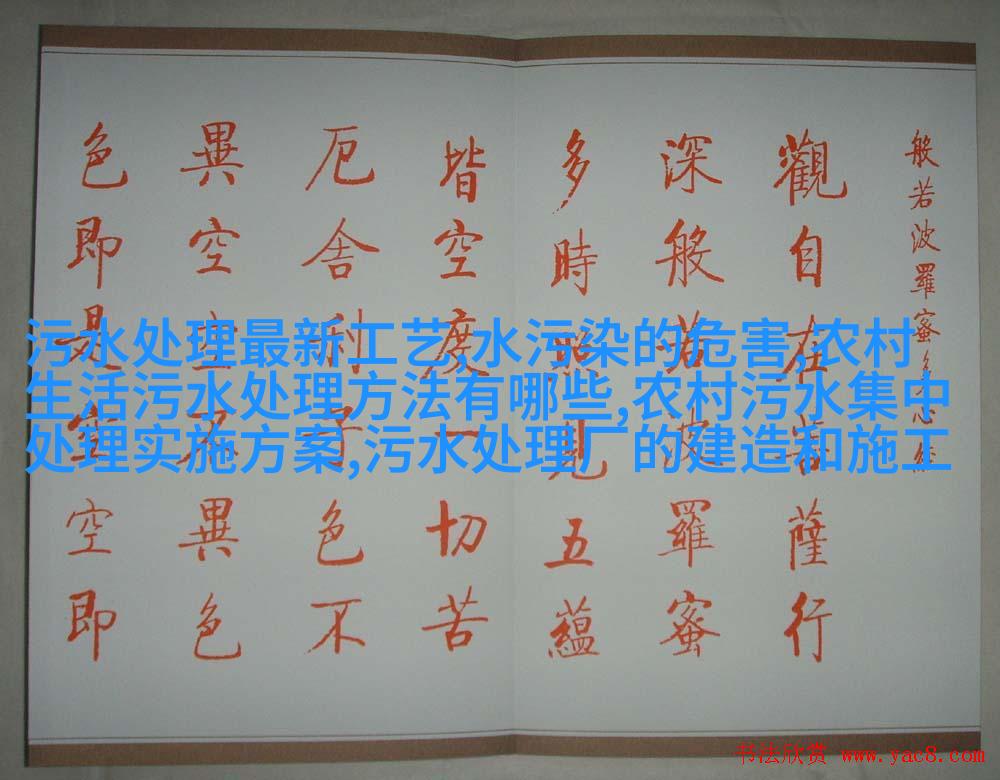 般若波羅蜜多心經
觀自在菩薩行
深般若波羅蜜
多時照見五蘊
皆空度一切苦
厄舍利子色不
異空空不異色
色即是空空即
污水处理最新工艺,水污染的危害,农村
生活污水处理方法有哪些,农村污水集中
处理实施方案,污水处理厂的建造和施工
书法欣赏 www.yac8.com